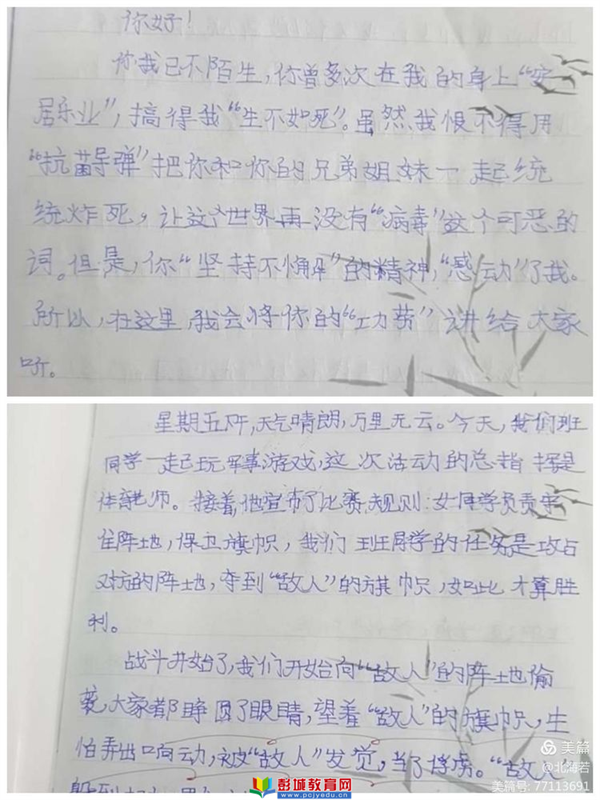 你好！
你我已不陌生，你曾多次在我的身上“安
居乐业”，搞得我“生不如死”。虽然我恨不得用
“抗菌导弹”把你和你的兄弟姐妹一起统
统炸死，让这个世界再没有“病毒”这个可恶的
词。但是，你“坚持不懈”的精神，“感动”了我。
所以，在这里，我会将你的“功劳”讲给大家
听。
星期五下午，天气晴朗，万里无云。今天，我们班
同学一起玩军事游戏，这次活动的总指挥是
体育老师。接着，他宣布了比赛规则：女同学负责守
住阵地，保卫旗帜，我们班同学的任务是攻占
对方的阵地，夺到“敌人”的旗帜，如此才算胜
利。
战斗开始了，我们开始向“敌人”的阵地偷
袭，大家都睁圆了眼睛，望着“敌人”的旗帜，生
怕弄出响动，被“敌人”发觉，当了俘虏。“敌人
美篇
@北雁若
美篇号：77113691
彭城教育网
www.pcjyedu.cn